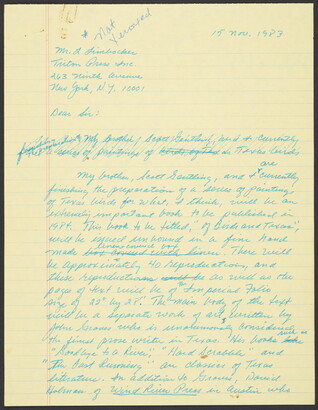 * Not
turned
15 Nov. 1983
Mr. A. Limbarder
Teston Press Inc.
263 Ninth Avenue
New York, N.Y. 10001
Dear Sir:
My brother, Scott Gentling, and I currently
a series of paintings of birds of the in Texas birds
are
My brother, Scott Gentling, and I currently
finishing the preparation of a series of paintings
of Texas birds for what, I think, will be an
extremely important book to be published in
1984. This book to be titled, "Of Birds and Texas",
will be issued unbound in a fine hand
made linen covered box. There will
be approximately 40 reproductions, and
these reproductions as well as the
pages of text will be of Imperial Folio
size of 22" by 28". The main body of the text
will be a separate work of art, written by
John Graves who is unanimously considered
the finest prose writer in Texas. His books such as
"Goodbye to a River", "Hard Scrabble" and
"The Last Running" are classics of Texas
literature. In addition to Graves, David
Holman of Wind River Press in Austin who